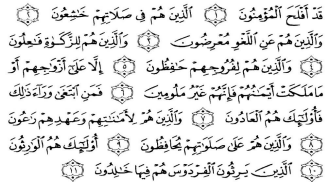 قَدْ أَفْلَحَ الْمُؤْمِنُونَ ١ الَّذِينَ هُمْ فِي صَلَاتِهِمْ خَاشِعُونَ
٢ وَالَّذِينَ هُمْ عَنِ اللَّغْوِ مُعْرِضُونَ ٣ وَالَّذِينَ هُمْ لِلزَّكَوٰةِ فَاعِلُونَ
٤ وَالَّذِينَ هُمْ لِفُرُوجِهِمْ حَافِظُونَ ٥ إِلَّا عَلَىٰ أَزْوَاجِهِمْ أَوْ
مَا مَلَكَتْ أَيْمَانُهُمْ فَإِنَّهُمْ غَيْرُ مَلُومِينَ ٦ فَمَنِ ابْتَغَىٰ وَرَاءَ ذَٰلِكَ
فَأُولَٰئِكَ هُمُ الْعَادُونَ ٧ وَالَّذِينَ هُمْ لِأَمَانَاتِهِمْ وَعَهْدِهِمْ رَاعُونَ
٨ وَالَّذِينَ هُمْ عَلَىٰ صَلَوَاتِهِمْ يُحَافِظُونَ ٩ أُولَٰئِكَ هُمُ الْوَارِثُونَ
١٠ الَّذِينَ يَرِثُونَ الْفِرْدَوْسَ هُمْ فِيهَا خَالِدُونَ ١١